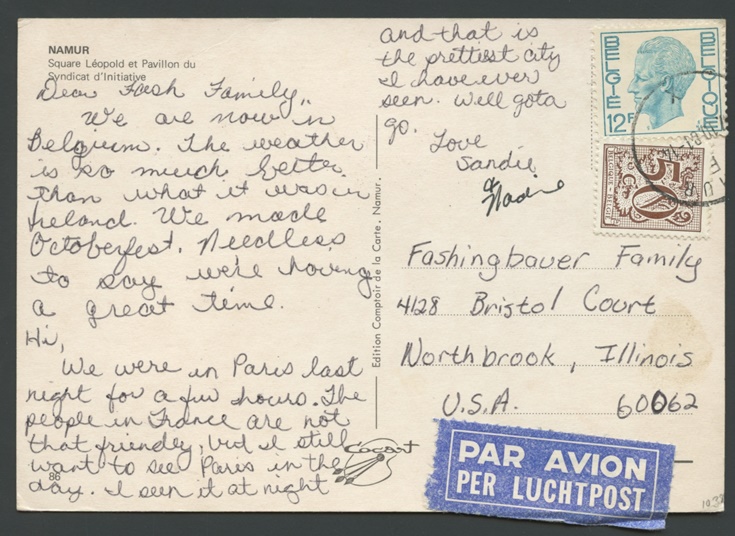 NAMUR
Square Léopold et Pavillon du
Syndicat d'Initiative
Dear Fash Family,
We are now in
Belgium. The weather
is so much better
than what it was in
Ireland. We made
Octoberfest. Needless
to say we're having
a great time.
Hi,
We were in Paris last
night for a few hours. The
people in France are not
that friendly, but I still
want to see Paris in the
day. I seen it at night
and that is
the prettiest city
I have ever
seen. Well gota
go.
Love
Sandie
Nadine
86
Cocart
Edition Comptoir de la Carte. Namur.
BELGIE
BELGIQUE
12F
BELGIQUE-BELGIË
50
Cs
Fashingbauer Family
4128 Bristol Court
Northbrook, Illinois
U.S.A. 60062
PAR AVION
PER LUCHTPOST